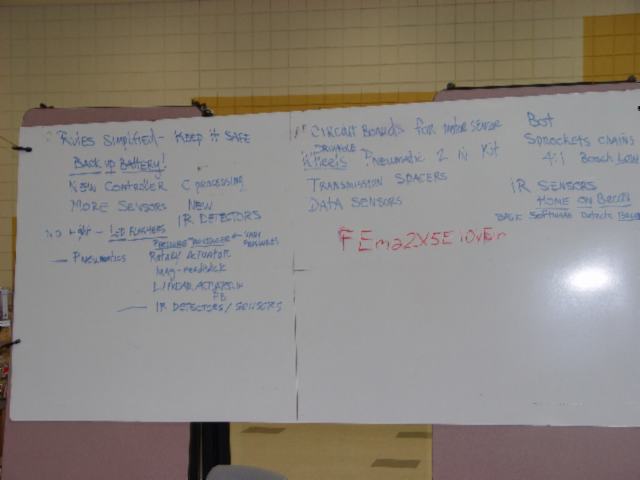 Rules Simplified - Keep it Safe
Back up Battery!
New Controller C processing
More Sensors New
IR Detectors
No light - LED Flashers
Pressure Transducer ← Vary Pressures
— Pneumatics Rotary Actuator
Mag-reedsick
Linear Actuator
FB
— IR Detectors / Sensors
Circuit Boards for motor sensor
Drivable
Wheels Pneumatic 2 in Kit
Transmission Spacers
Data Sensors
Bot
Sprockets Chains
4:1 Bosch Low
IR Sensors
Home on Beacon
Basic Software Detects
FEma2X5E iOvEin